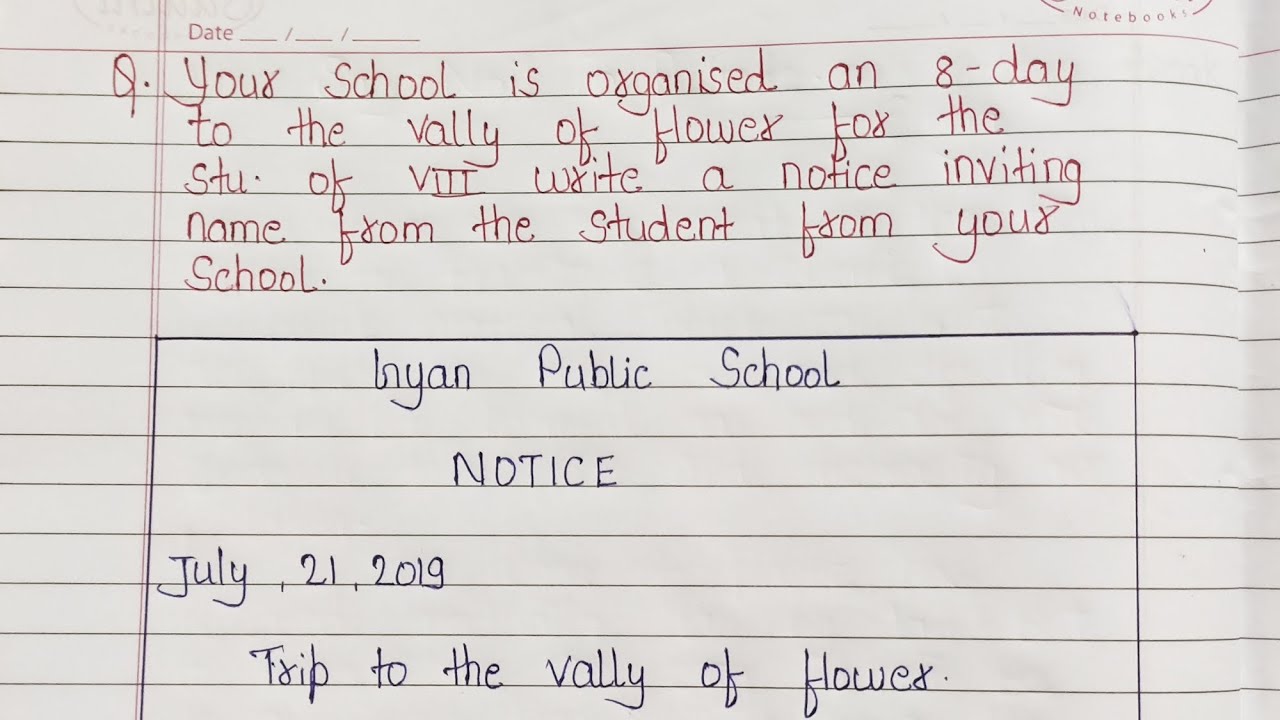 Notebooks
Date ___ /___ /_____
Q. Your School is organised an 8-day
to the vally of flower for the
Stu. of VIII write a notice inviting
name from the student from your
School.
Gyan Public School
NOTICE
July , 21, 2019
Trip to the vally of flower.